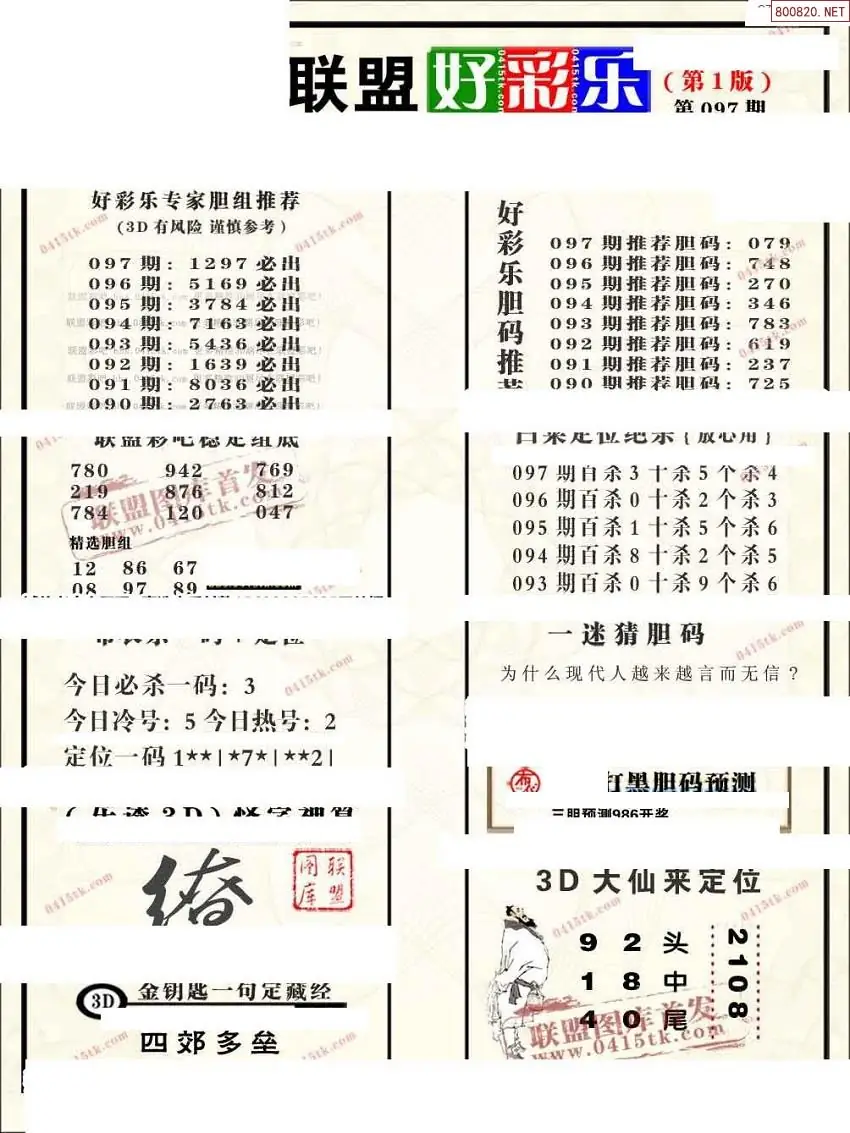 800820.NET
联盟好彩乐（第1版）
第097期
好彩乐专家胆组推荐
(3D有风险 谨慎参考)
097期: 1297必出
096期: 5169必出
095期: 3784必出
094期: 7163必出
093期: 5436必出
092期: 1639必出
091期: 8036必出
090期: 2763必出
好彩乐胆码推荐
097期推荐胆码: 079
096期推荐胆码: 748
095期推荐胆码: 270
094期推荐胆码: 346
093期推荐胆码: 783
092期推荐胆码: 619
091期推荐胆码: 237
090期推荐胆码: 725
联盟彩吧稳定组底
780 942 769
219 876 812
784 120 047
精选胆组
12 86 67
08 97 89
联盟图库首发
www.0415tk.com
097期百杀3十杀5个杀4
096期百杀0十杀2个杀3
095期百杀1十杀5个杀6
094期百杀8十杀2个杀5
093期百杀0十杀9个杀6
今日必杀一码: 3
今日冷号: 5 今日热号: 2
定位一码 1**|*7*|**2|
一迷猜胆码
为什么现代人越来越言而无信?
打黑胆码预测
三胆预测986开奖
联盟图库
3D 金钥匙一句定藏经
四郊多垒
3D大仙来定位
9 2 头
1 8 中
4 0 尾
2108
联盟图库首发
www.0415tk.com